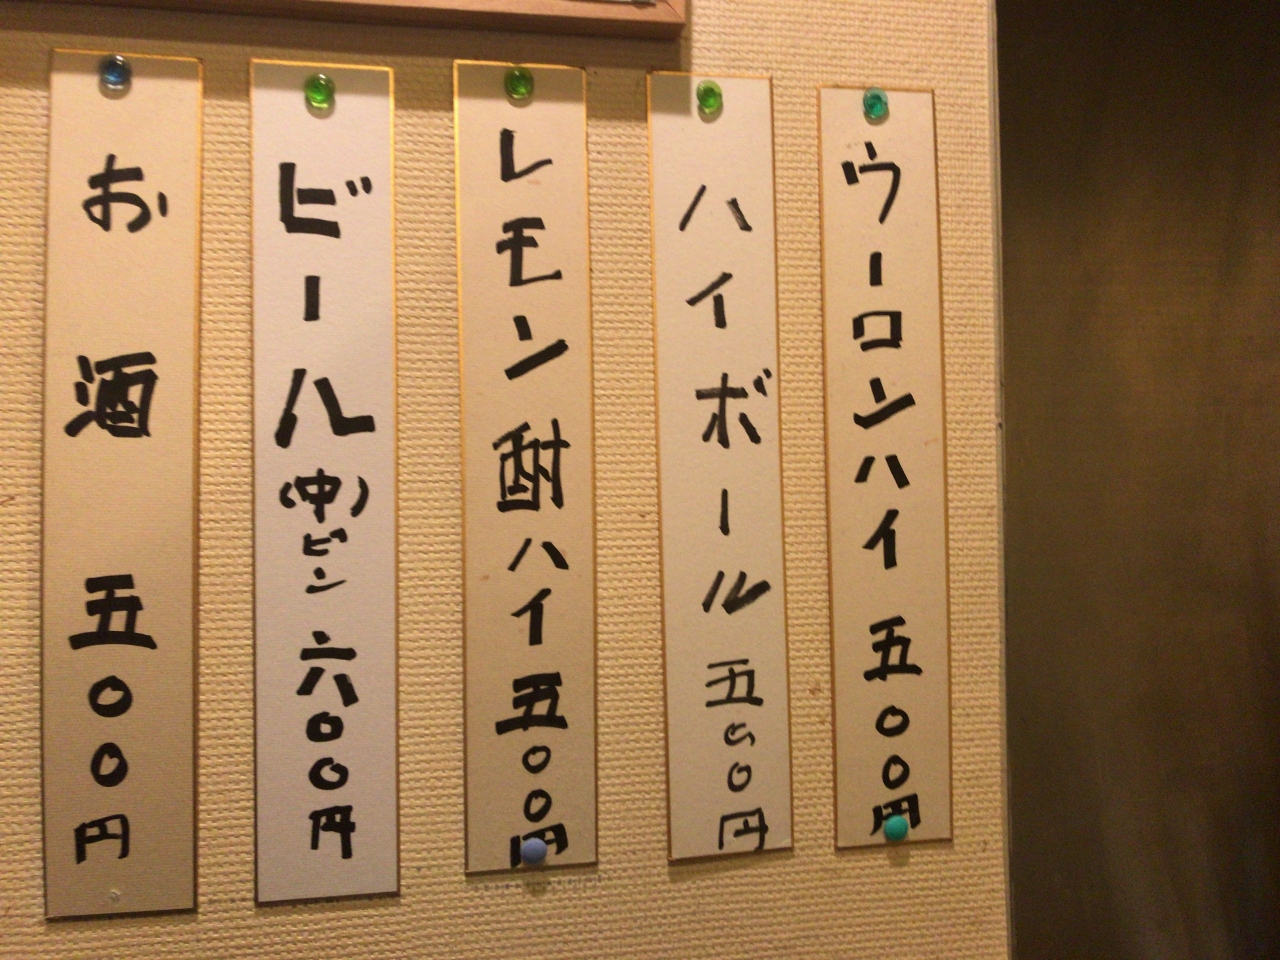 ウーロンハイ 五〇〇円
ハイボール 五〇〇円
レモン酎ハイ 五〇〇円
ビール(中)ビン 六〇〇円
お酒 五〇〇円